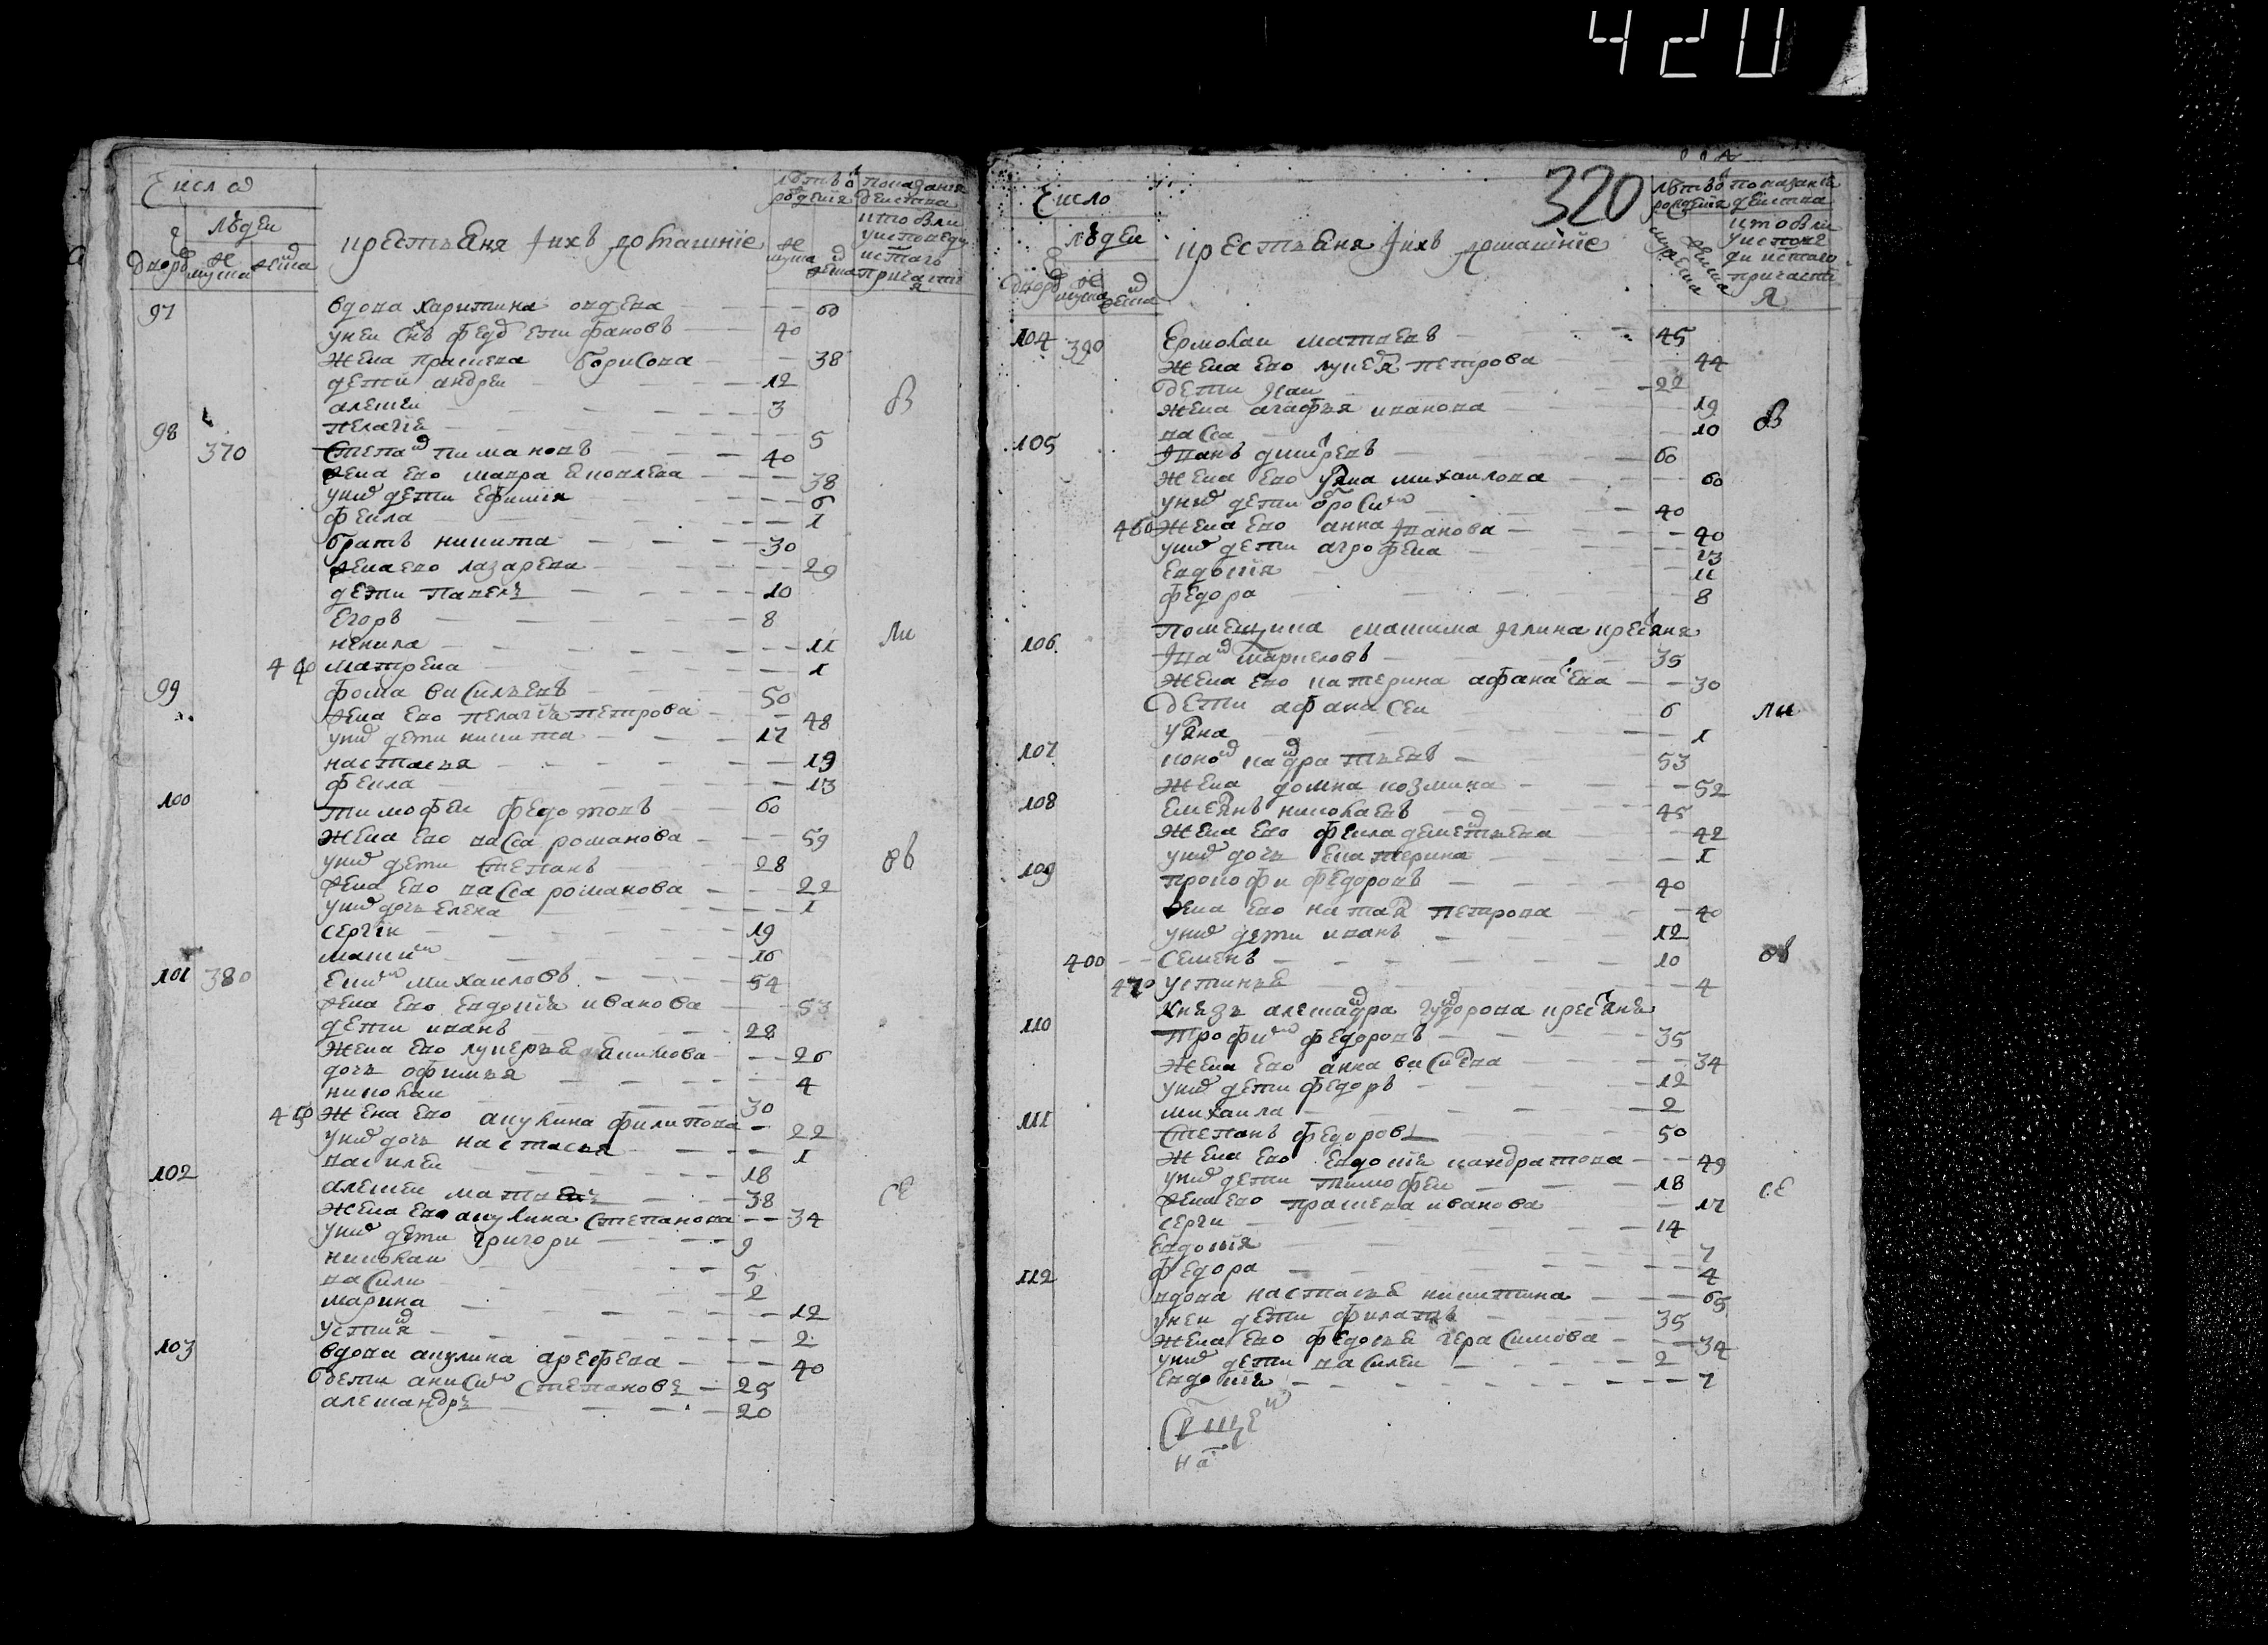 420
Число
людеи
дворъ мужеска женска
крестьяня ихъ домашние
лѣтъ от рождения
показание действа кто был у исповеди и святаго причастия
97 вдова харитина авдеева 60
у неи снъ федо епифановъ 40
жена праскева борисова 38
дети андреи 12
алексеи 3 ов
пелагѣе 5
98 370 степан тимановъ 40
жена ево мавра яковлева 38
у них дети ефимия 6
фекла 1
братъ никита 30
жена ево лазарева 29
дети павелъ 10
егоръ 8
ненила 11 ли
440 матрена 1
99 фома василъевъ 50
жена ево пелагия петрова 48
у них дети никита 17
настасья 19
фекла 13
100 тимофеи федотовъ 60
жена ево васса романова 59
у них дети степанъ 28 ов
жена ево васса романова 22
у них дочь елена 1
сергеи 19
максим 16
101 380 еким михаиловъ 54
жена ево евдокия иванова 53
дети иванъ 28
жена ево лукеръя якимова 26
дочь офимья 4
николаи 30
450 жена ево акулина филипова 22
у них дочь настасья 1
василеи 18
102 алексеи матвеевъ 38 се
жена ево акулина степанова 34
у них дети григори 9
николаи 5
васили 2
марина 12
устиня 2
103 вдова акулина арефева 40
дети анисим степановъ 25
александръ 20
320
Число
людеи
дворъ мужеска женска
крестьяня ихъ домашние
лѣтъ от рождения
мужеска женска
показание действа кто был у исповеди и святаго причастия
104 390 ермолаи матвевъ 45
жена ево лукеря петрова 44
дети 22
жена агафья иванова 19
васса 10 ов
105 иванъ дмитревъ 60
жена ево уляна михаилова 60
у них дети обросим 40
460 жена ево анна иванова 40
у них дети агрофена 23
евдокия 11
федора 8
помещика максима крестьяня
106 иван гавриловъ 35
жена ево катерина афанасева 30
дети афанасеи 6 ли
уляна 1
107 конон кандратъевъ 53
жена домна козмина 52
108 емелянъ николаевъ 45
жена ево фекла дементьева 42
у них дочь екатерина 1
109 прокофи федоровъ 40
жена ево наталя петрова 40
у них дети иванъ 12
400 семенъ 10 ов
470 устинья 4
князь александра крестьянѣ
110 трофим федоровъ 35
жена ево анна василева 34
у них дети федоръ 12
михаила 2
111 степанъ федоровъ 50
жена ево евдокия кандратова 49
у них дети тимофеи 18 се
жена ево праскева иванова 17
серги 14
евдокия 7
федора 4
112 вдова настасья никитина 65
у неи дети филатъ 35
жена ево федосья герасимова 34
у них дети василеи 2
евдокия 7